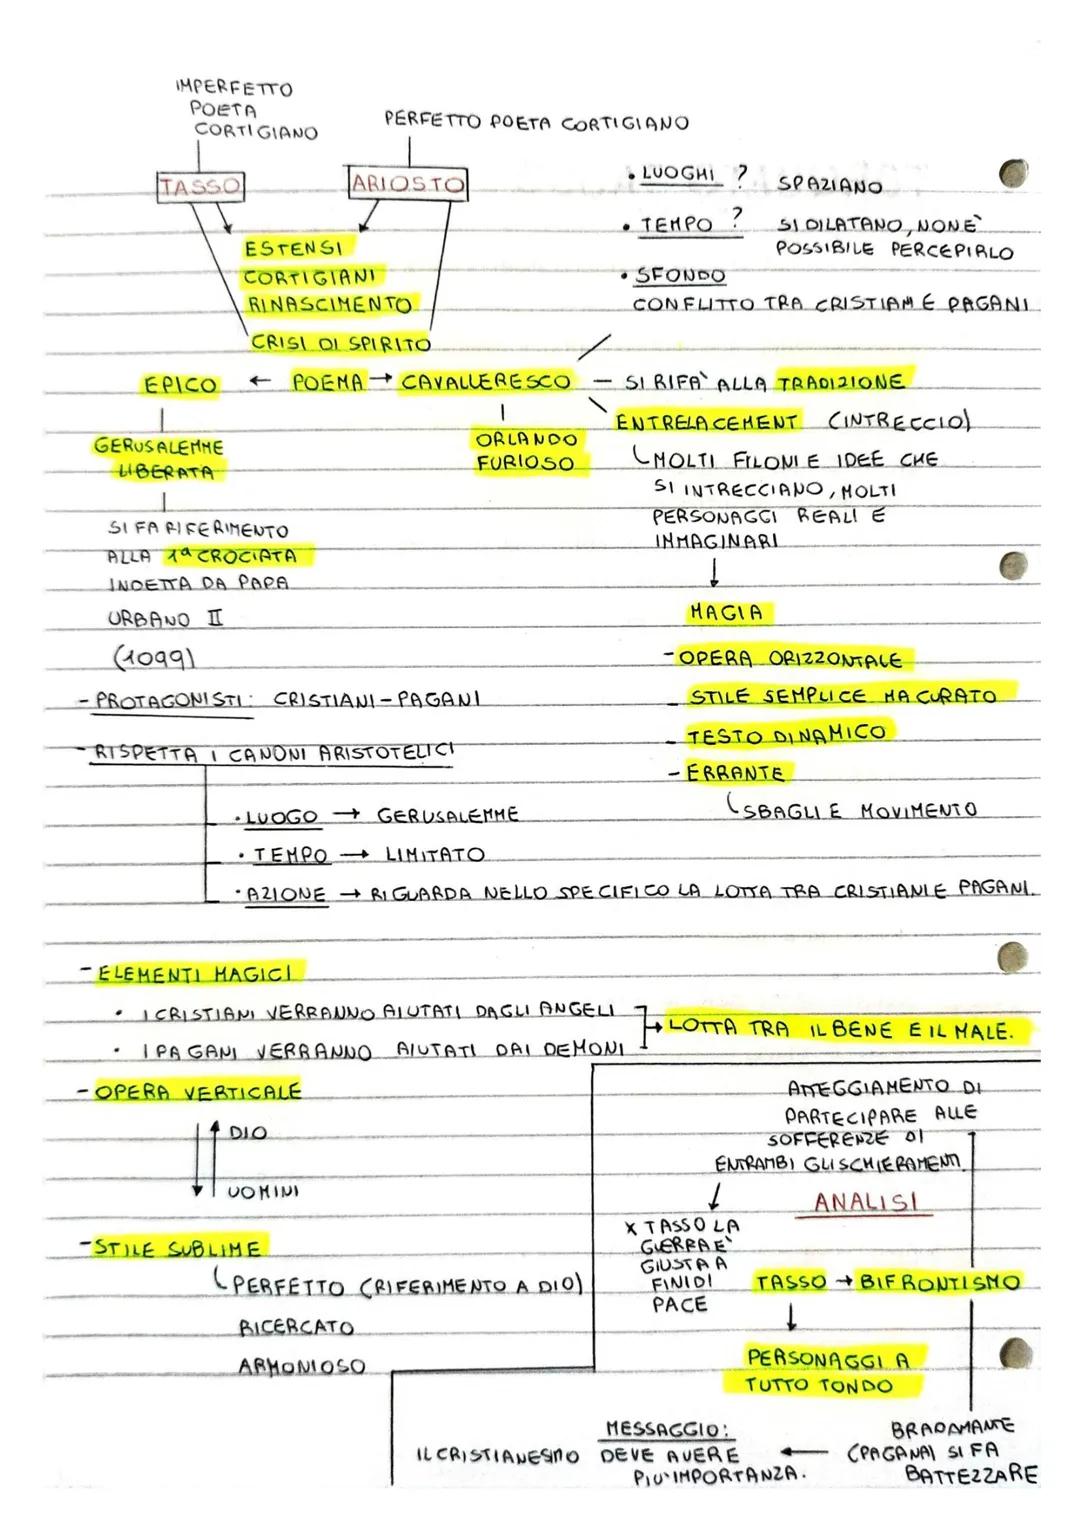 IMPERFETTO
POETA
CORTIGIANO
PERFETTO POETA CORTIGIANO
TASSO
ARIOSTO
• LUOGHI ? SPAZIANO
• TEMPO ? SI DILATANO, NON È
POSSIBILE PERCEPIRLO
• SFONDO
CONFLITTO TRA CRISTIANI E PAGANI
ESTENSI
CORTIGIANI
RINASCIMENTO
CRISI DI SPIRITO
EPICO ← POEMA → CAVALLERESCO — SI RIFA' ALLA TRADIZIONE
GERUSALEMME
LIBERATA
ORLANDO
FURIOSO
ENTRELACEMENT (INTRECCIO)
MOLTI FILONI E IDEE CHE
SI INTRECCIANO, MOLTI
PERSONAGGI REALI E
IMMAGINARI
SI FA RIFERIMENTO
ALLA 1ª CROCIATA
INDETTA DA PAPA
URBANO II
(1099)
MAGIA
- OPERA ORIZZONTALE
- STILE SEMPLICE MA CURATO
- TESTO DINAMICO
- ERRANTE
SBAGLI E MOVIMENTO
- PROTAGONISTI: CRISTIANI - PAGANI
- RISPETTA I CANONI ARISTOTELICI
• LUOGO → GERUSALEMME
• TEMPO → LIMITATO
• AZIONE → RIGUARDA NELLO SPECIFICO LA LOTTA TRA CRISTIANI E PAGANI.
- ELEMENTI MAGICI
• I CRISTIANI VERRANNO AIUTATI DAGLI ANGELI
• I PAGANI VERRANNO AIUTATI DAI DEMONI
→ LOTTA TRA IL BENE E IL MALE.
- OPERA VERTICALE
DIO
UOMINI
- STILE SUBLIME
PERFETTO (RIFERIMENTO A DIO)
RICERCATO
ARMONIOSO
ATTEGGIAMENTO DI
PARTECIPARE ALLE
SOFFERENZE DI
ENTRAMBI GLI SCHIERAMENTI
ANALISI
X TASSO LA
GUERRA E'
GIUSTA A
FINI DI
PACE
TASSO → BIFRONTISMO
PERSONAGGI A
TUTTO TONDO
BRADAMANTE
(PAGANA) SI FA
BATTEZZARE
MESSAGGIO:
IL CRISTIANESIMO DEVE AVERE
PIU' IMPORTANZA.